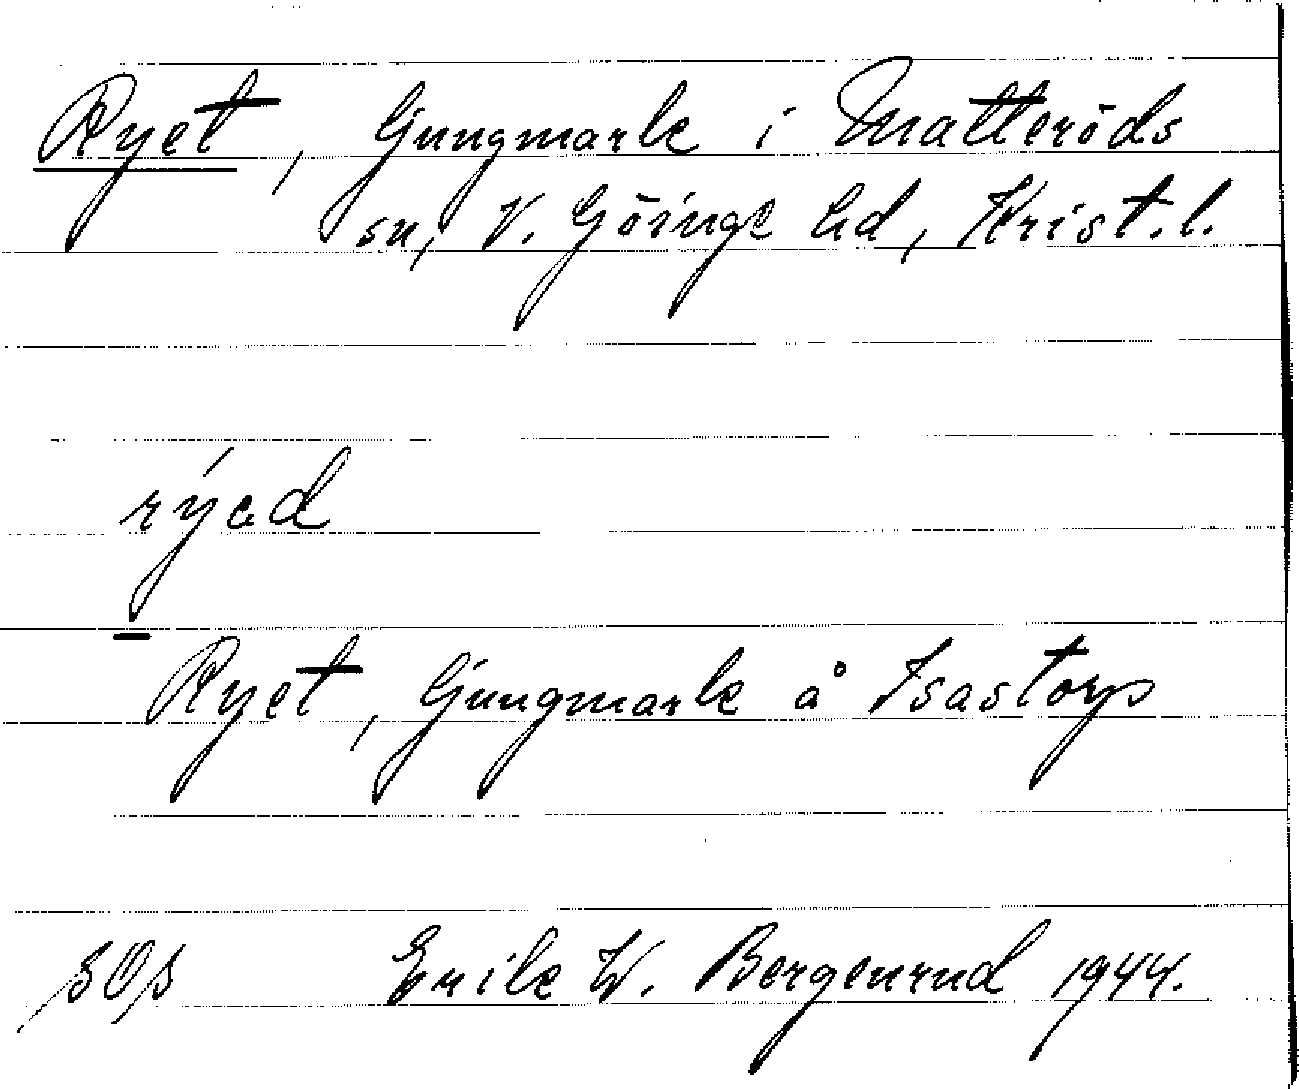 Ryet, ljungmark i Matteröds
sn, V. Göinge hd, Krist. l.
rýed
Ryet, ljungmark å Isastorp
Erik W. Bergenrud 1944.